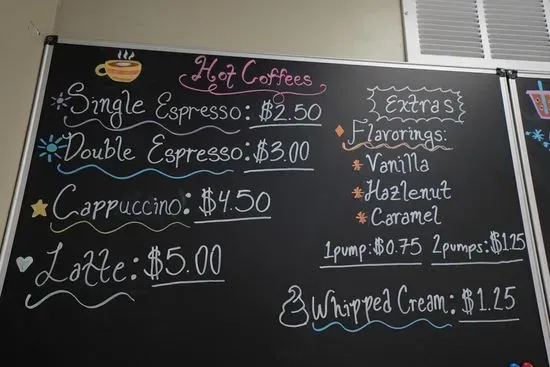 Hot Coffees
Single Espresso: $2.50
Double Espresso: $3.00
Cappuccino: $4.50
Latte: $5.00
Extras
Flavorings:
Vanilla
Hazlenut
Caramel
1pump: $0.75 2pumps: $1.25
Whipped Cream: $1.25